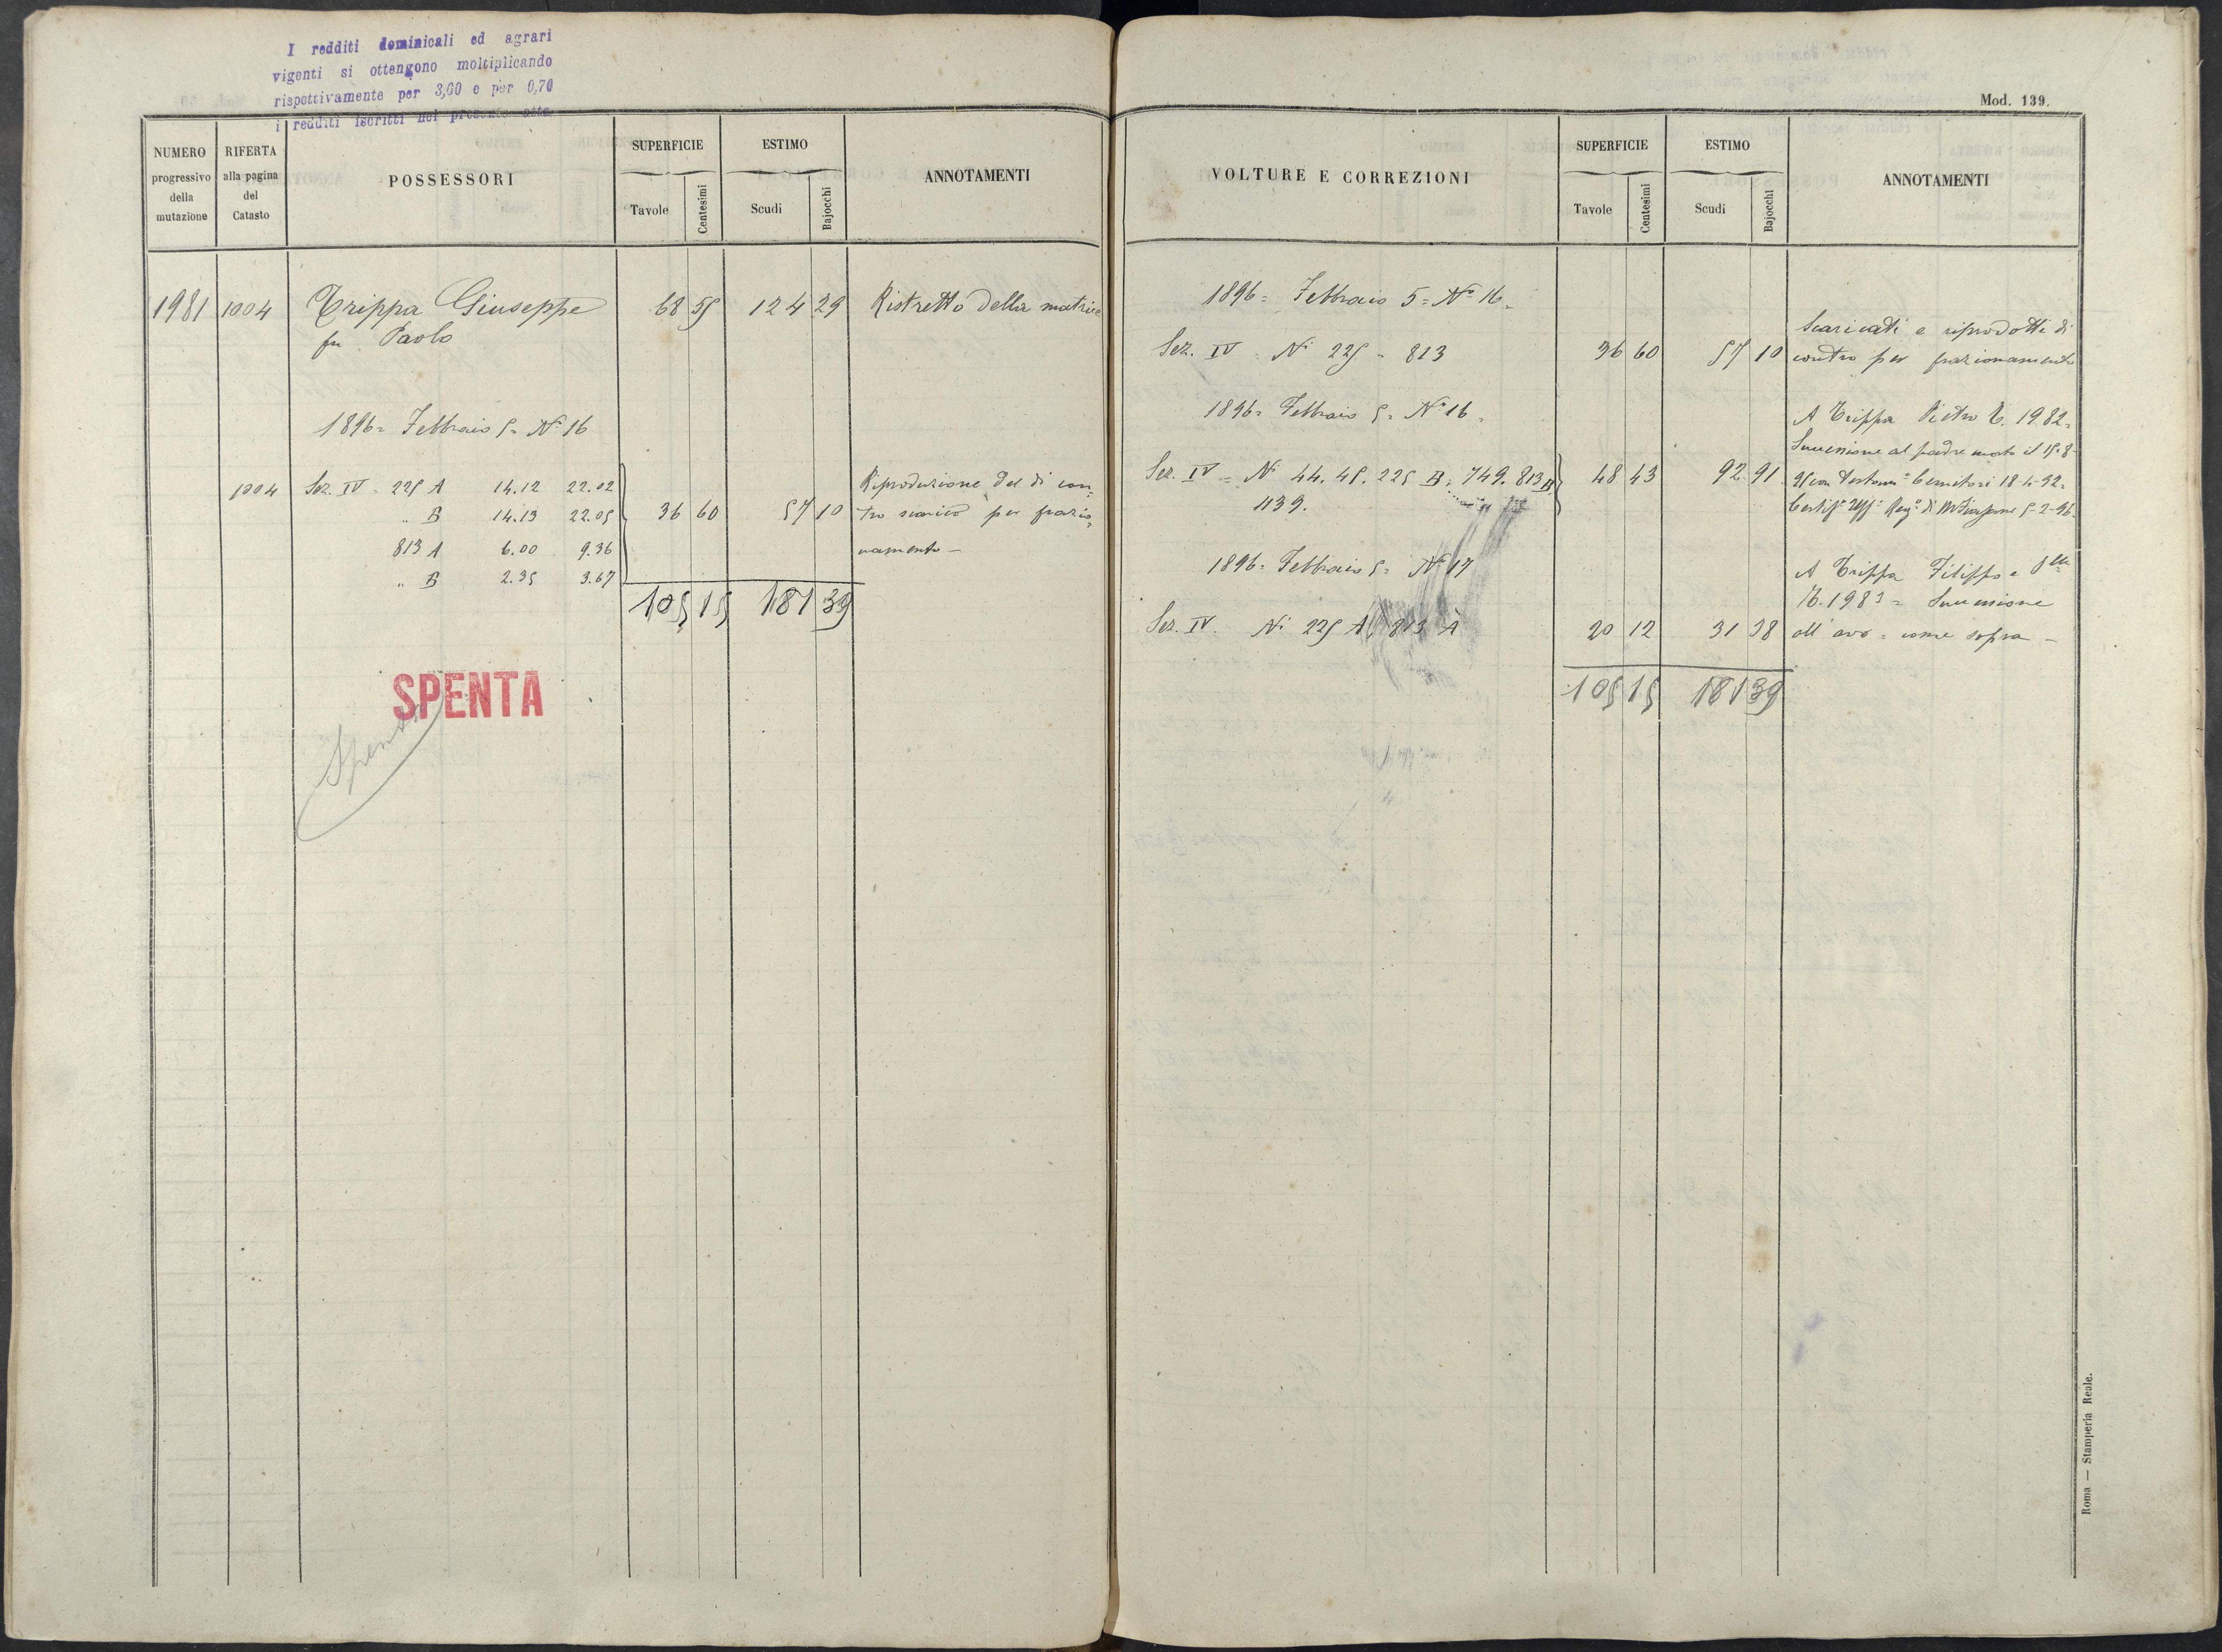 I redditi dominicali ed agrari
vigenti si ottengono moltiplicando
rispettivamente per 3,60 e per 0,70
i redditi iscritti nel presente atto
NUMERO progressivo della mutazione
RIFERTA alla pagina del Catasto
POSSESSORI
SUPERFICIE
Tavole Centesimi
ESTIMO
Scudi Bajocchi
ANNOTAMENTI
1981 1004 Trippa Giuseppe 68 55 124 29 Ristretto della matrice
fu Paolo
1896= Febbraio 5= N° 16
1004 Sez. IV = 225 A 14.12 22.02 Riproduzione del di con=
" B 14.13 22.05 36 60 57 10 tro scarico per frazio=
813 A 6.00 9.36 namento —
" B 2.35 3.67
105 15 181 39
SPENTA
Spenta
Mod. 139.
VOLTURE E CORREZIONI
SUPERFICIE
Tavole Centesimi
ESTIMO
Scudi Bajocchi
ANNOTAMENTI
1896= Febbraio 5= N° 16=
Scaricati e riprodotti di
Sez. IV = Ni 225 = 813 36 60 57 10 contro per frazionamento
1896= Febbraio 5= N° 16=
A Trippa Pietro 1982=
Successione al padre morto il 15-8-
Sez. IV = Ni 44. 45. 225 B. 749. 813 B 48 43 92 91 91 con 18-4-92=
1139. 5-2-96
1896= Febbraio 5= N° 17
A Trippa Filippo e
1983= Successione
Sez. IV. Ni 225 A 813 A 20 12 31 38 all' avo = come sopra —
105 15 181 39
Roma — Stamperia Reale.